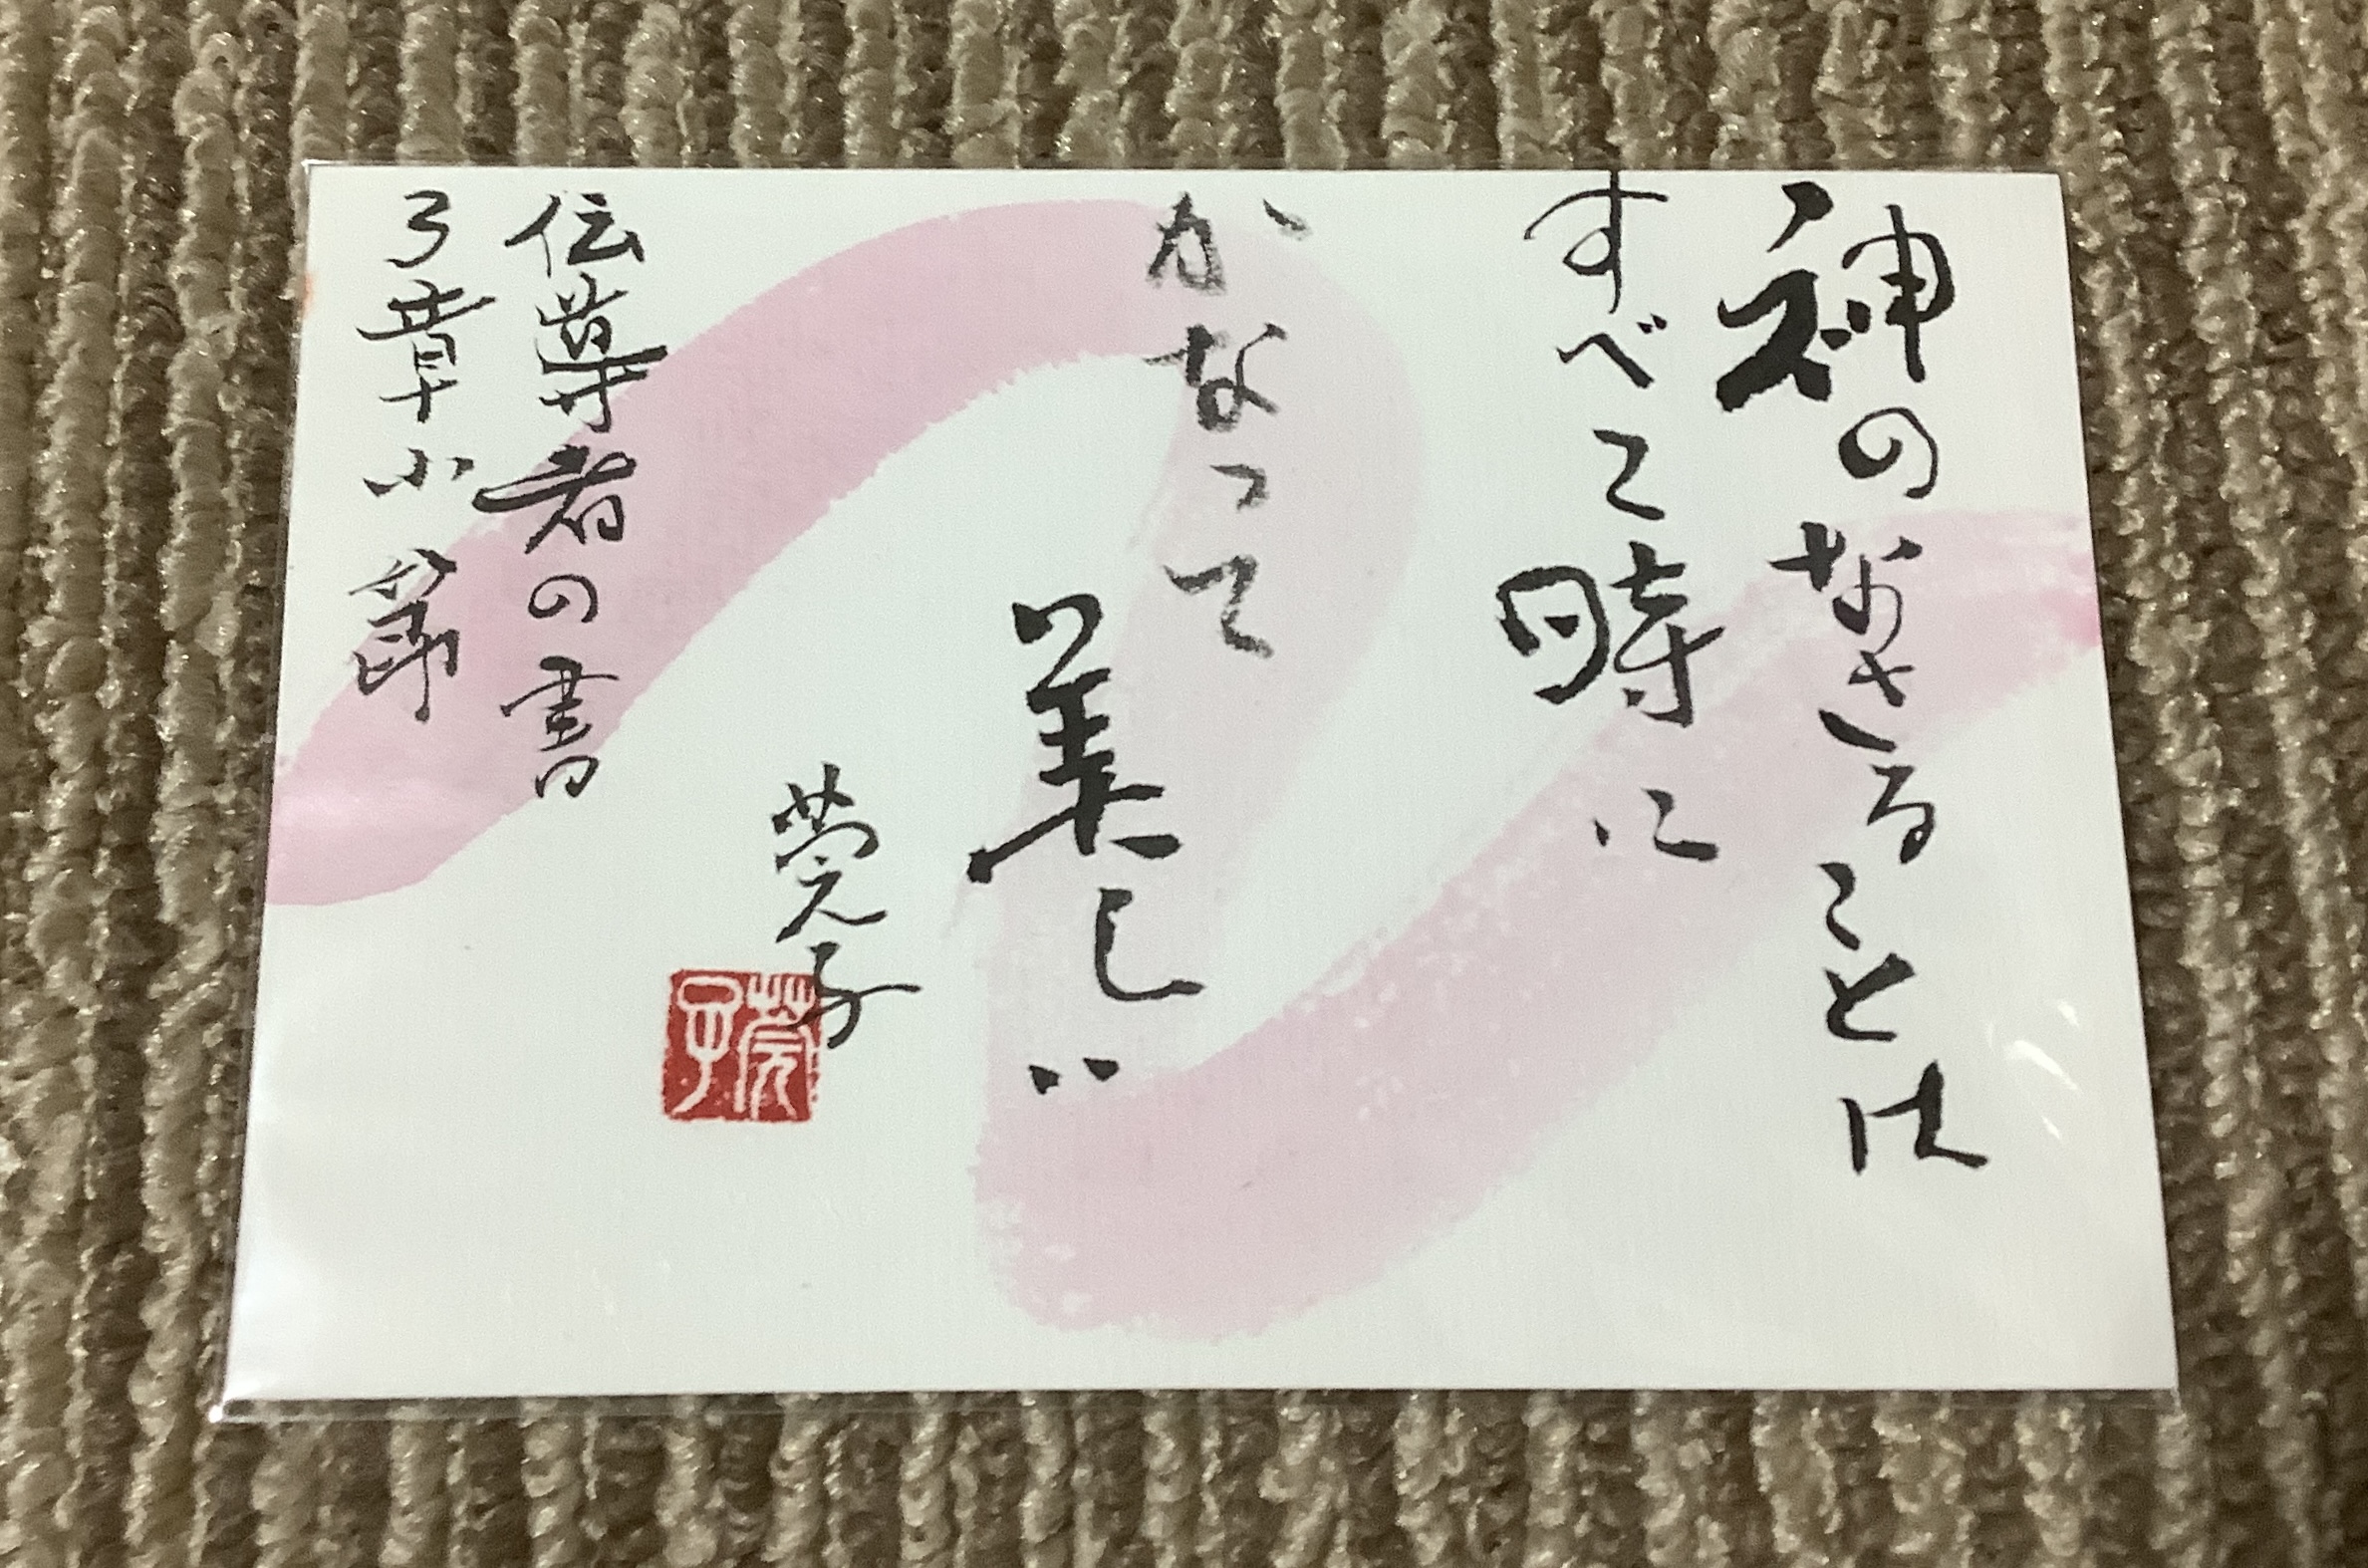 神のなさることは
すべて時に
かなって
美しい
莞子
伝導者の書
3章11節
莞子